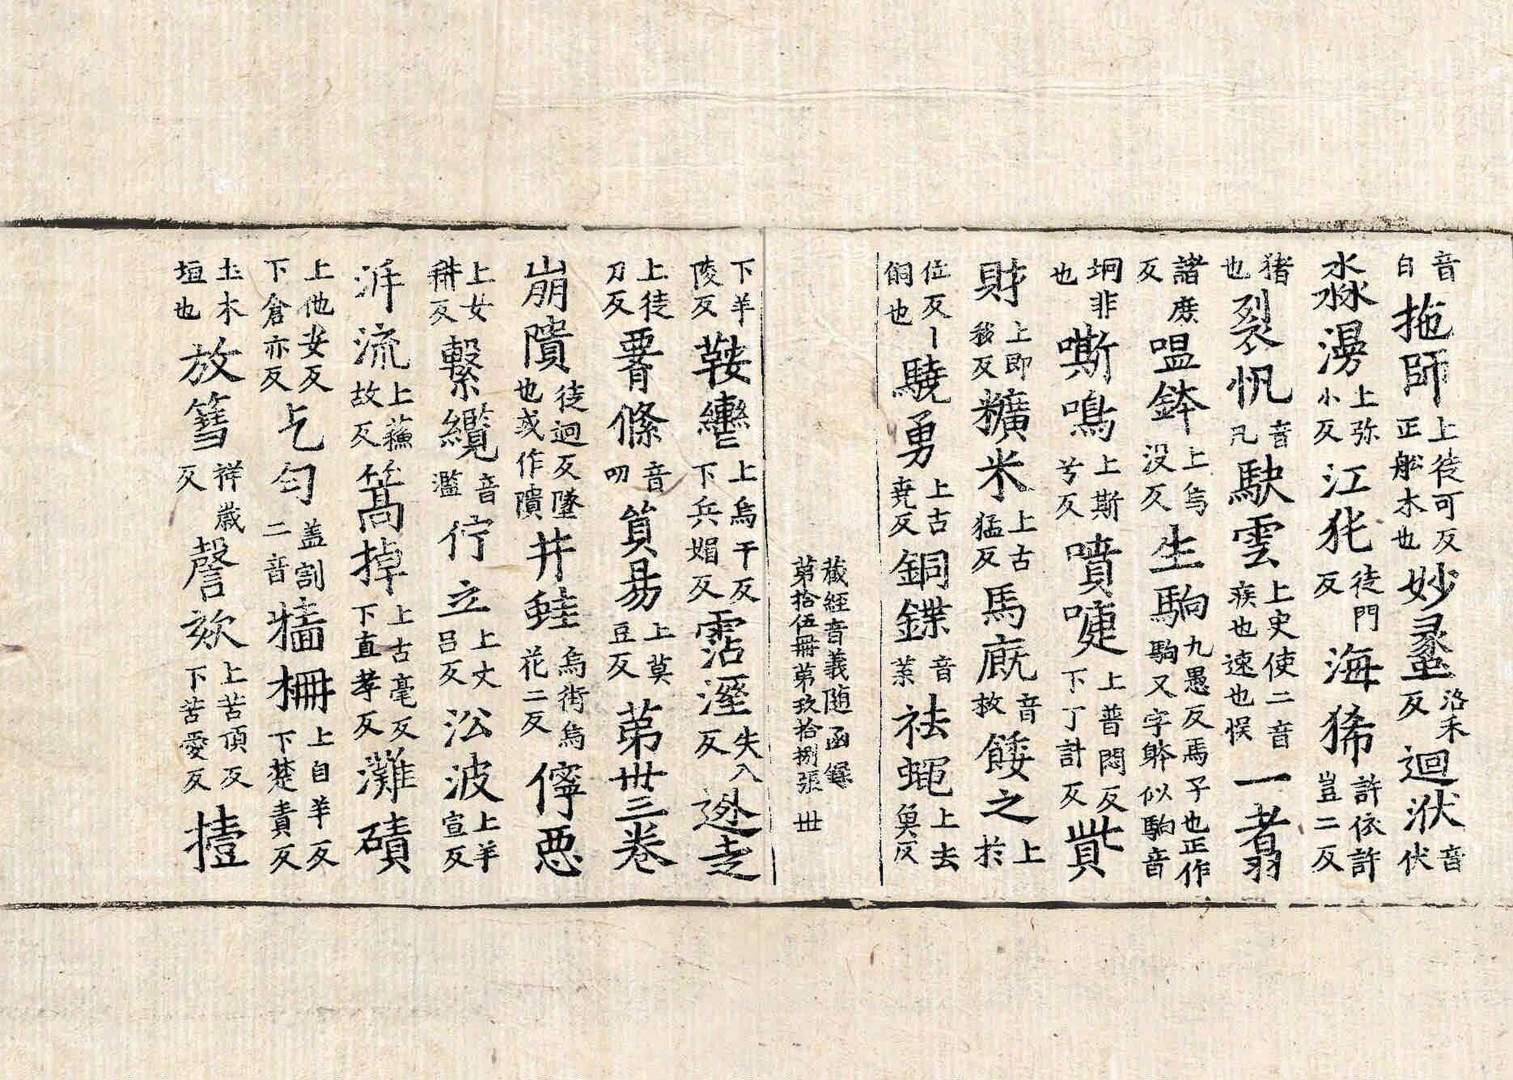 音白拖師上徒可反正舩木也妙蠡洛禾反迴洑音伏
淼漫上弥小反江㹠徒門反海狶許依許豈二反
猪也裂帆音凡駃雲上史使二音疾也速也悮一翥
諸庶反嗢鉢上烏没反生駒九愚反馬子也正作駒又字躰似駉音
坰非也嘶鳴上斯兮反噴嚏上普悶反下丁計反貲
財上即移反穬米上古猛反馬廄音救餧之上於
位反丨飼也驍勇上古堯反銅鍱音葉祛蠅上去魚反
藏經音義随函録
第拾伍冊第玖拾捌張 丗
下羊陵反鞍轡上烏干反下兵媚反霑溼失入反逃走
上徒刀反絛音叨貿易上莫豆反第丗三卷
崩隤徒迴反墜也或作隤井䵷烏街烏花二反儜惡
上女耕反繫纜音濫佇立上丈吕反㳂波上羊宣反
泝流上蘓故反篙掉上古毫反下直孝反灘磧
上他安反下倉亦反乞匃盖割二音牆柵上自羊反下楚責反
土木垣也放篲祥歲反謦欬上苦頂反下苦愛反擡